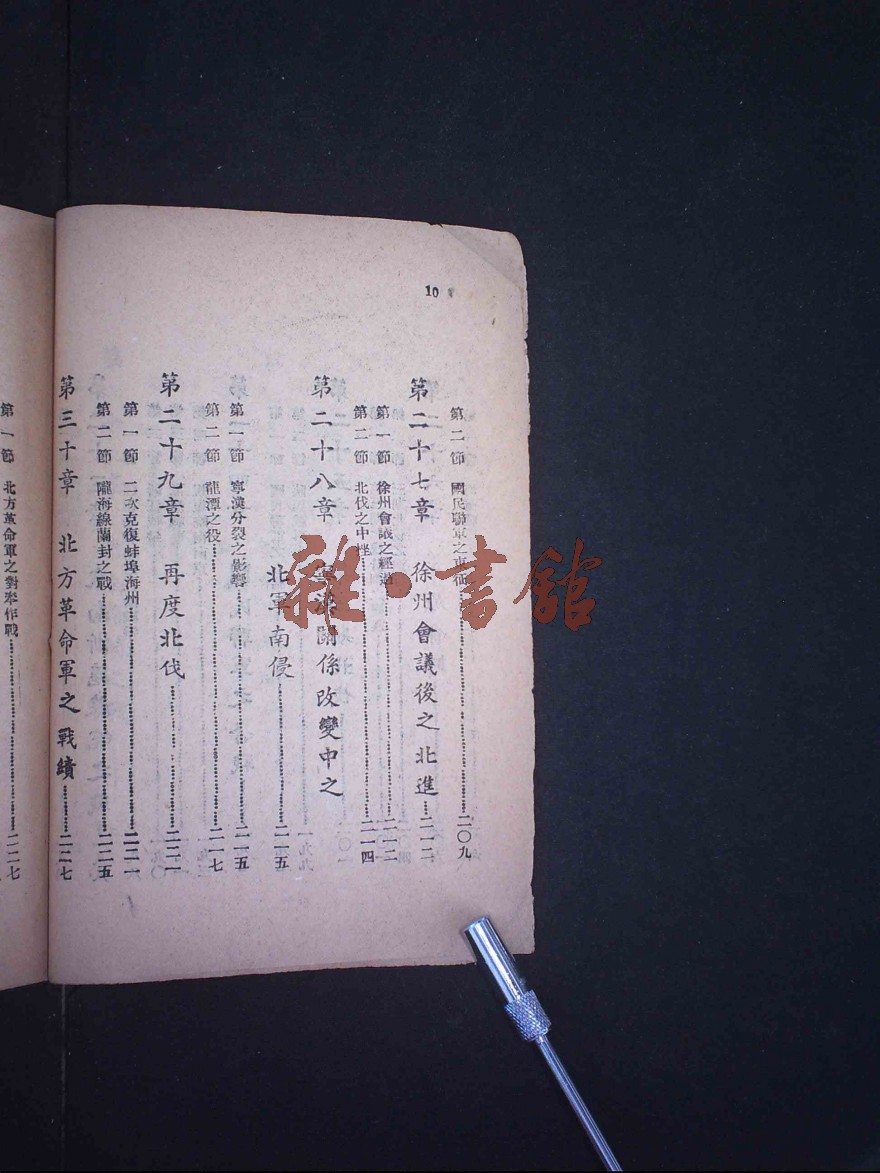 10
第二節 國民聯軍之東征……二〇九
第二十七章 徐州會議後之北進……二一二
第一節 徐州會議之經過……二一二
第二節 北伐之中挫……二一四
第二十八章 關係改變中之
北軍南侵……二一五
第一節 寧漢分裂之影響……二一五
第二節 龍潭之役……二一七
第二十九章 再度北伐……二二一
第一節 二次克復蚌埠海州……二二一
第二節 隴海線蘭封之戰……二二五
第三十章 北方革命軍之戰績……二二七
第一節 北方革命軍之對奉作戰……二二七
雜·書館